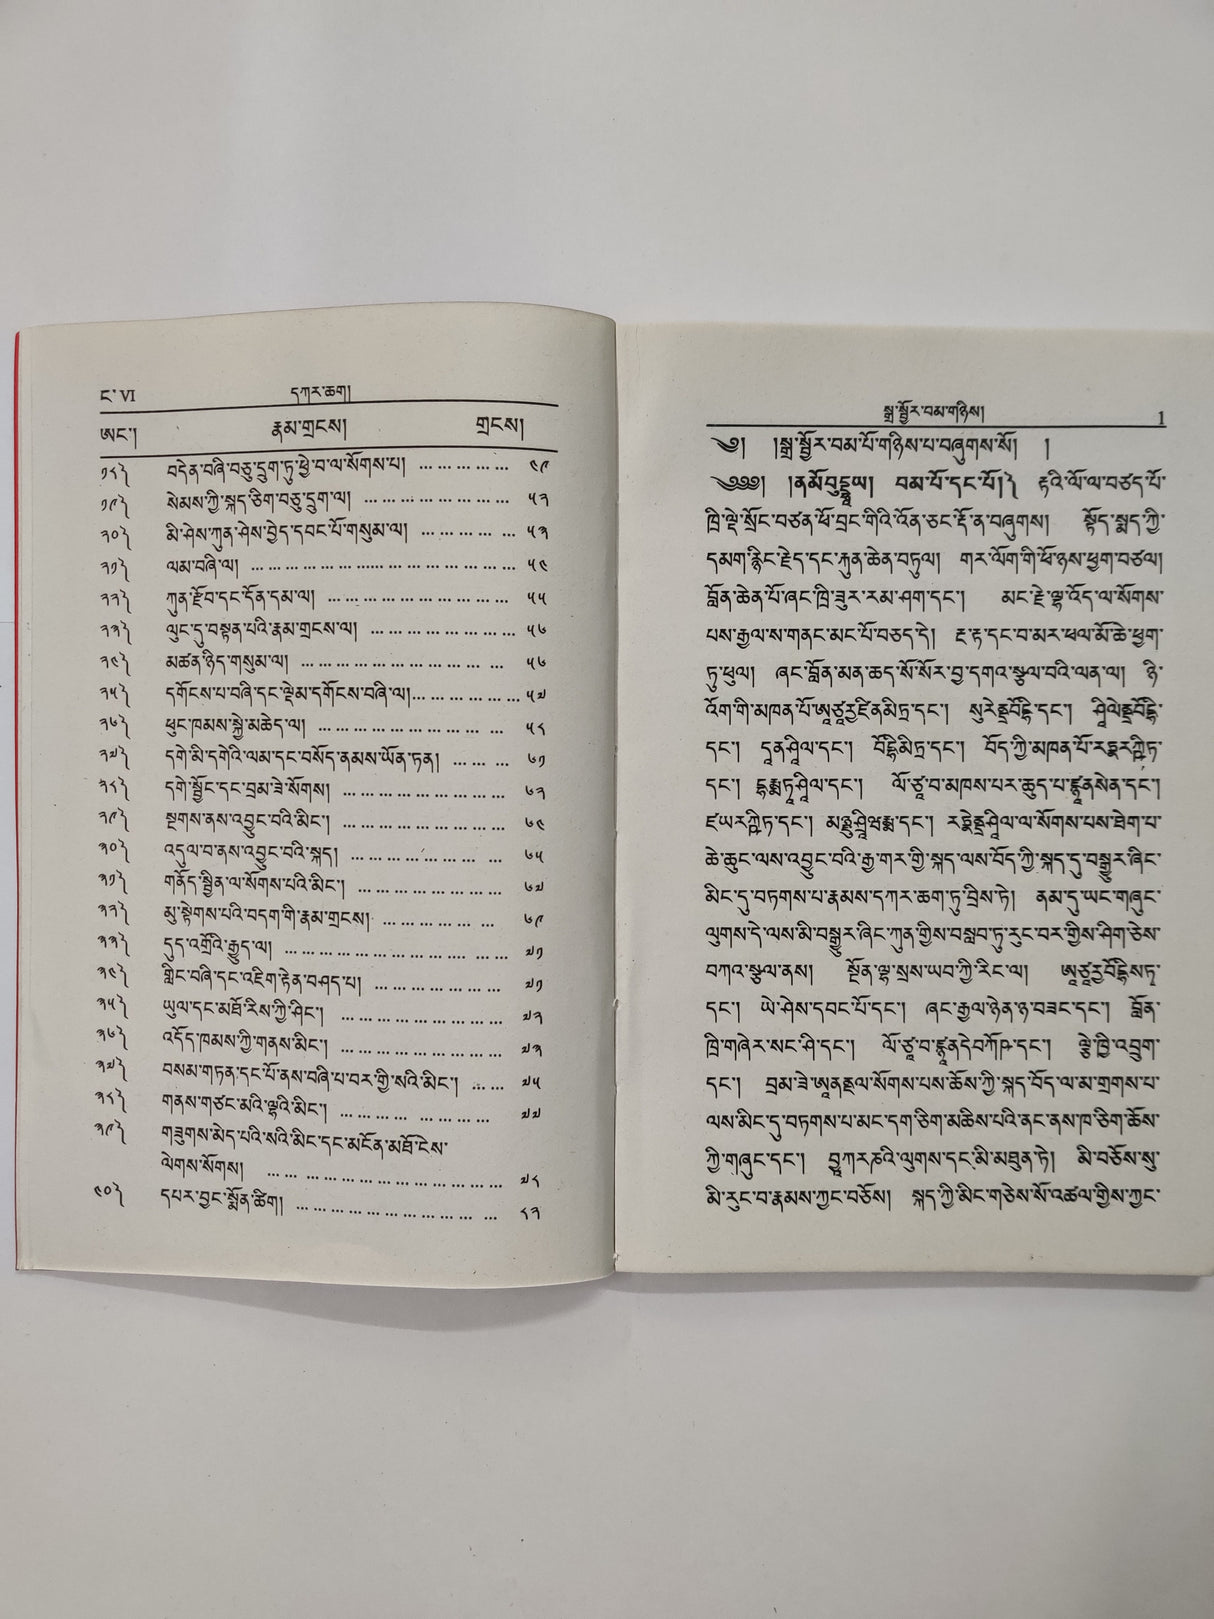 ང་ VI དཀར་ཆག།
ཨང་། རྣམ་གྲངས། གྲངས།
༡༨༽ བདེན་བཞི་བཅུ་དྲུག་ཏུ་ཕྱེ་བ་ལ་སོགས་པ། ... ... ... ... ... ༤༩
༡༩༽ སེམས་ཀྱི་སྐད་ཅིག་བཅུ་དྲུག་ལ། ... ... ... ... ... ... ... ... ༥༢
༢༠༽ མི་ཤེས་ཀུན་ཤེས་བྱེད་དབང་པོ་གསུམ་ལ། ... ... ... ... ... ༥༣
༢༡༽ ལམ་བཞི་ལ། ... ... ... ... ... ... ...... ... ... ... ... ... ... ... ༥༤
༢༢༽ ཀུན་རྫོབ་དང་དོན་དམ་ལ། ... ... ... ... ... ... ... ... ... ... ༥༥
༢༣༽ ལུང་དུ་བསྟན་པའི་རྣམ་གྲངས་ལ། ... ... ... ... ... ... ... ... ༥༦
༢༤༽ མཚན་ཉིད་གསུམ་ལ། ... ... ... ... ... ... ... ... ... ... ... ༥༦
༢༥༽ དགོངས་པ་བཞི་དང་ལྡེམ་དགོངས་བཞི་ལ།... ... ... ... ... ... ༥༧
༢༦༽ ཕུང་ཁམས་སྐྱེ་མཆེད་ལ། ... ... ... ... ... ... ... ... ... ... ༥༨
༢༧༽ དགེ་མི་དགེའི་ལམ་དང་བསོད་ནམས་ཡོན་ཏན། ... ... ... ༦༡
༢༨༽ དགེ་སྦྱོང་དང་བྲམ་ཟེ་སོགས། ... ... ... ... ... ... ... ... ... ༦༢
༢༩༽ སྔགས་ནས་འབྱུང་བའི་མིང་། ... ... ... ... ... ... ... ... ... ༦༤
༣༠༽ འདུལ་བ་ནས་འབྱུང་བའི་སྐད། ... ... ... ... ... ... ... ... ༦༥
༣༡༽ གནོད་སྦྱིན་ལ་སོགས་པའི་མིང་། ... ... ... ... ... ... ... ... ༦༧
༣༢༽ མུ་སྟེགས་པའི་བདག་གི་རྣམ་གྲངས། ... ... ... ... ... ... ༦༩
༣༣༽ དུད་འགྲོའི་རྒྱུད་ལ། ... ... ... ... ... ... ... ... ... .... ... ... ༧༡
༣༤༽ གླིང་བཞི་དང་འཇིག་རྟེན་བཤད་པ། ... ... ... ... ... ... ... ༧༡
༣༥༽ ཡུལ་དང་མཐོ་རིས་ཀྱི་ཤིང་། ... ... ... ... ... ... .... ... ... ༧༢
༣༦༽ འདོད་ཁམས་ཀྱི་གནས་མིང་། ... ... ... ... ... ... ... ... ... ༧༣
༣༧༽ བསམ་གཏན་དང་པོ་ནས་བཞི་པ་བར་གྱི་སའི་མིང་། ... ... ༧༥
༣༨༽ གནས་གཙང་མའི་ལྷའི་མིང་། ... ... ... ... ... ... ... ... ༧༧
༣༩༽ གཟུགས་མེད་པའི་སའི་མིང་དང་མངོན་མཐོ་ངེས་
ལེགས་སོགས། ... ... ... ... ... ... ... ... ... ... ... ... ... ༧༨
༤༠༽ དཔར་བྱང་སྨོན་ཚིག། ... ... ... ... ... ... ... ... ... ... ... ༨༢
སྒྲ་སྦྱོར་བམ་གཉིས། 1
༄༡། །སྒྲ་སྦྱོར་བམ་པོ་གཉིས་པ་བཞུགས་སོ། །
༄༅༅། །ནམོ་བུདྡྷཱཡ། བམ་པོ་དང་པོ།༽ རྟའི་ལོ་ལ་བཙད་པོ་
ཁྲི་ལྡེ་སྲོང་བཙན་ཕོ་བྲང་གིའི་འོན་ཅང་རྡོ་ན་བཞུགས། སྟོད་སྨད་ཀྱི་
དམག་རྙིང་རྗེད་དང་རྐུན་ཆེན་བཏུལ། གར་ལོག་གི་ཕོ་ཉས་ཕྱག་བཙལ།
བློན་ཆེན་པོ་ཞང་ཁྲི་ཟུར་རམ་ཤག་དང་། མང་རྗེ་ལྷ་འོད་ལ་སོགས་
པས་རྒྱལ་ས་གནང་མང་པོ་བཅད་དེ། རྔ་རྟ་དང་བ་མར་ཕལ་མོ་ཆེ་ཕྱག་
ཏུ་ཕུལ། ཞང་བློན་མན་ཆད་སོ་སོར་བྱ་དགའ་སྩལ་བའི་ལན་ལ། ཉི་
འོག་གི་མཁན་པོ་ཨཱཙཱརྱ་ཛིནམིཏྲ་དང་། སུརེནྡྲབོདྷི་དང་། ཤཱིལེནྡྲབོདྷི་
དང་། དཱནཤཱིལ་དང་། བོདྷིམིཏྲ་དང་། བོད་ཀྱི་མཁན་པོ་རཏྣརཀྵིཏ་
དང་། དྷརྨཏཱཤཱིལ་དང་། ལོ་ཙཱ་བ་མཁས་པར་ཆུད་པ་ཛྙཱནསེན་དང་།
ཛཡརཀྵིཏ་དང་། མཉྫུཤྲཱིཝརྨ་དང་། རཏྣེནྡྲཤཱིལ་ལ་སོགས་པས་ཐེག་པ་
ཆེ་ཆུང་ལས་འབྱུང་བའི་རྒྱ་གར་གྱི་སྐད་ལས་བོད་ཀྱི་སྐད་དུ་བསྒྱུར་ཞིང་
མིང་དུ་བཏགས་པ་རྣམས་དཀར་ཆག་ཏུ་བྲིས་ཏེ། ནམ་དུ་ཡང་གཞུང་
ལུགས་དེ་ལས་མི་བསྒྱུར་ཞིང་ཀུན་གྱིས་བསླབ་ཏུ་རུང་བར་གྱིས་ཤིག་ཅེས་
བཀའ་སྩལ་ནས། སྔོན་ལྷ་སྲས་ཡབ་ཀྱི་རིང་ལ། ཨཱཙཱརྱ་བོདྷིསཏྭ་
དང་། ཡེ་ཤེས་དབང་པོ་དང་། ཞང་རྒྱལ་ཉེན་ཉ་བཟང་དང་། བློན་
ཁྲི་གཞེར་སང་ཤི་དང་། ལོ་ཙཱ་བ་ཛྙཱནདེབཀོཥ་དང་། ལྕེ་ཁྱི་འབྲུག་
དང་། བྲམ་ཟེ་ཨཱནནྡལ་སོགས་པས་ཆོས་ཀྱི་སྐད་བོད་ལ་མ་གྲགས་པ་
ལས་མིང་དུ་བཏགས་པ་མང་དག་ཅིག་མཆིས་པའི་ནང་ནས་ཁ་ཅིག་ཆོས་
ཀྱི་གཞུང་དང་། བྱཱཀརཎའི་ལུགས་དང་མི་མཐུན་ཏེ། མི་བཅོས་སུ་
མི་རུང་བ་རྣམས་ཀྱང་བཅོས། སྐད་ཀྱི་མིང་གཅེས་སོ་འཚལ་གྱིས་ཀྱང་